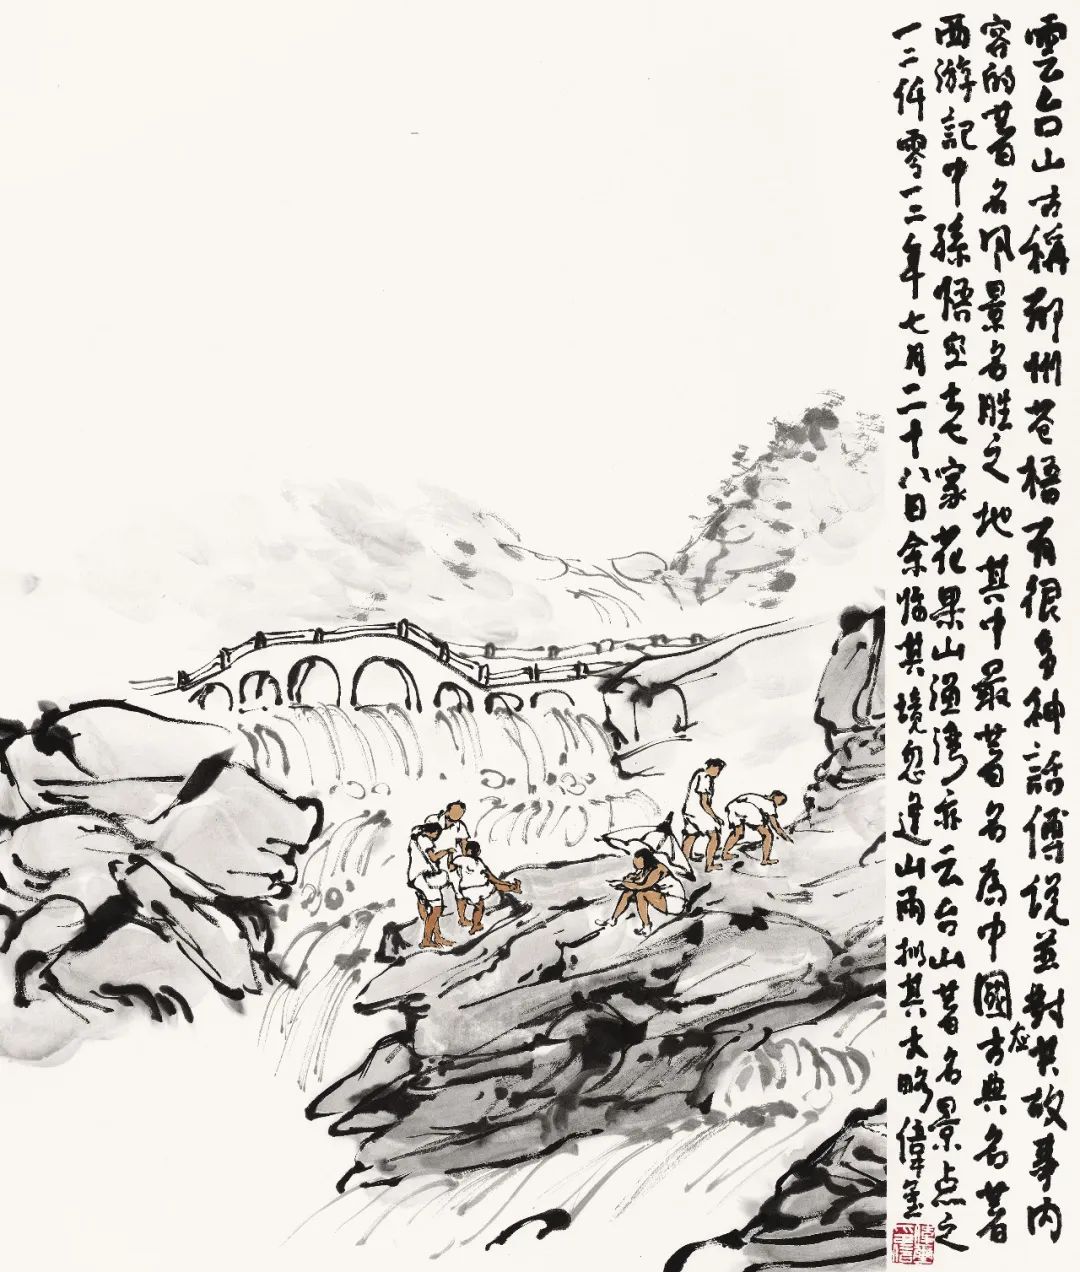 雲台山古稱郁州苍梧有很多神話傳说並對应其故事内
容的著名风景名胜之地其中最著名為中國古典名著
西游記中孫悟空老家花果山渔湾亦云台山著名景点之
一二仟零一二年七月二十八日余临其境忽逢山雨拟其大略偉